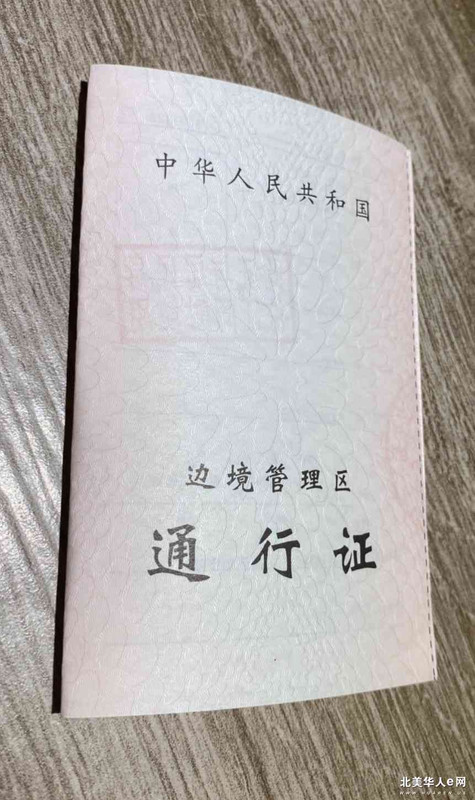 中华人民共和国
边境管理区
通行证
北美华人e网